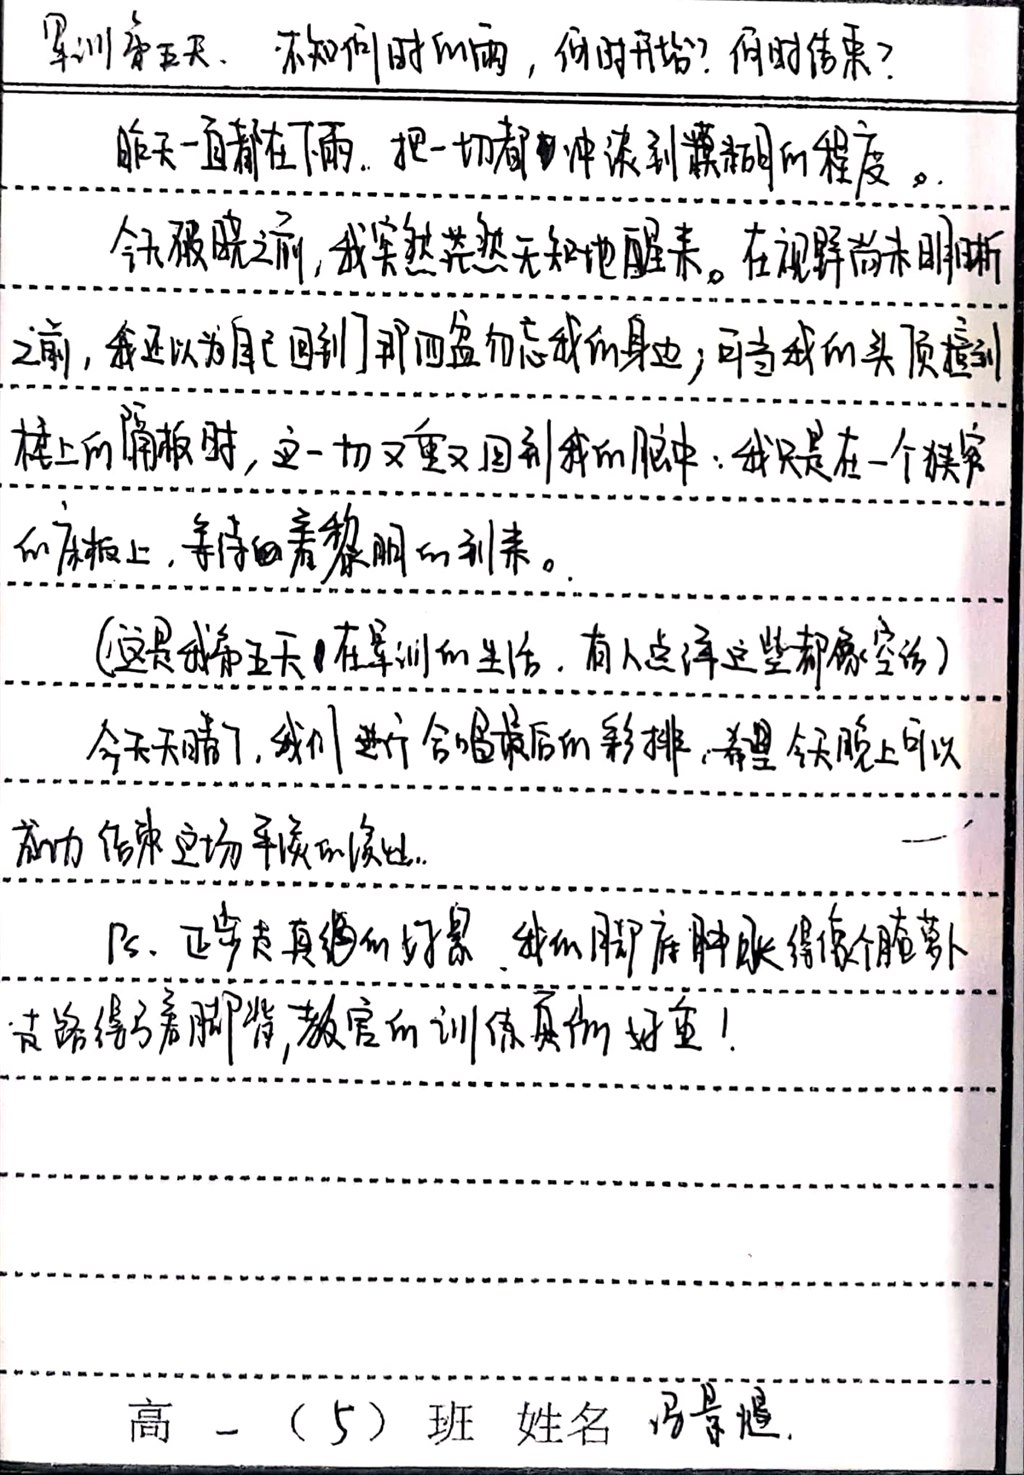 军训第五天. 不知何时的雨，何时开始？何时结束？
昨天一直都在下雨.. 把一切都冲淡到模糊的程度。
今天破晓之前，我突然茫然无知地醒来。在视野尚未明晰
之前，我还以为自己回到了那四盆勿忘我的身边，可当我的头顶撞到
床上的隔板时，这一切又重又回到我的脑中．我只是在一个狭窄
的床板上，等待着黎明的到来。
（这是我第五天在军训的生活．有人点评这些都像空话）
今天天晴了，我们进行合唱最后的彩排，希望今天晚上可以
成功结束这场平淡的演出..
Ps. 正步走真的好累、我的脚底肿胀得像个腌萝卜
走路得弓着脚背，教官的训练真的好重！
高一（5）班 姓名 冯景煜.